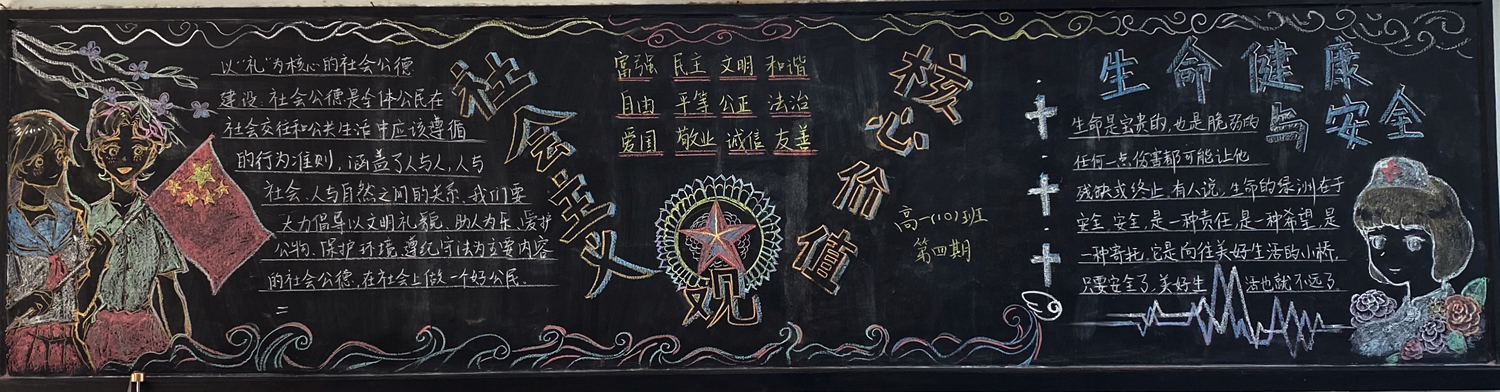 以“礼”为核心的社会公德
建设:社会公德是全体公民在
社会交往和公共生活中应该遵循
的行为准则,涵盖了人与人,人与
社会.人与自然之间的关系.我们要
大力倡导以文明礼貌、助人为乐、爱护
公物、保护环境、遵纪守法为主要内容
的社会公德,在社会上做一个好公民.
社会主义
核心价值
观
富强 民主 文明 和谐
自由 平等 公正 法治
爱国 敬业 诚信 友善
高一(10)班
第四期
生命健康
与安全
生命是宝贵的,也是脆弱的
任何一点伤害都可能让他
残缺或终止.有人说,生命的绿洲在于
安全.安全,是一种责任,是一种希望,是
一种寄托,它是向往美好生活的小桥,
只要安全了,美好生活也就不远了